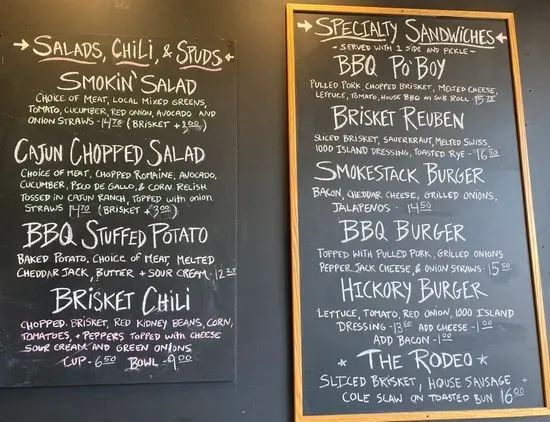 Salads, Chili, & Spuds
Smokin' Salad
Choice of meat, local mixed greens,
tomato, cucumber, red onion, avocado and
onion straws - 14.70 (Brisket + 3.00)
Cajun Chopped Salad
Choice of meat, chopped romaine, avocado,
cucumber, pico de gallo, & corn relish
tossed in cajun ranch, topped with onion
straws 14.70 (Brisket + 3.00)
BBQ Stuffed Potato
Baked potato, choice of meat, melted
cheddar jack, butter + sour cream - 12.25
Brisket Chili
Chopped brisket, red kidney beans, corn,
tomatoes, + peppers topped with cheese
sour cream and green onions
Cup - 6.50 Bowl - 9.00
Specialty Sandwiches
- served with 1 side and pickle -
BBQ Po' Boy
Pulled pork, chopped brisket, melted cheese,
lettuce, tomato, house BBQ on sub roll - 15
Brisket Reuben
Sliced brisket, sauerkraut, melted swiss,
1000 island dressing, toasted rye - 16.50
Smokestack Burger
Bacon, cheddar cheese, grilled onions,
jalapenos - 14.50
BBQ Burger
Topped with pulled pork, grilled onions
pepper jack cheese, & onion straws - 15.50
Hickory Burger
Lettuce, tomato, red onion, 1000 island
dressing - 13.50 add cheese - 1.00
add bacon - 1.00
The Rodeo
Sliced brisket, house sausage +
cole slaw on toasted bun 16.00